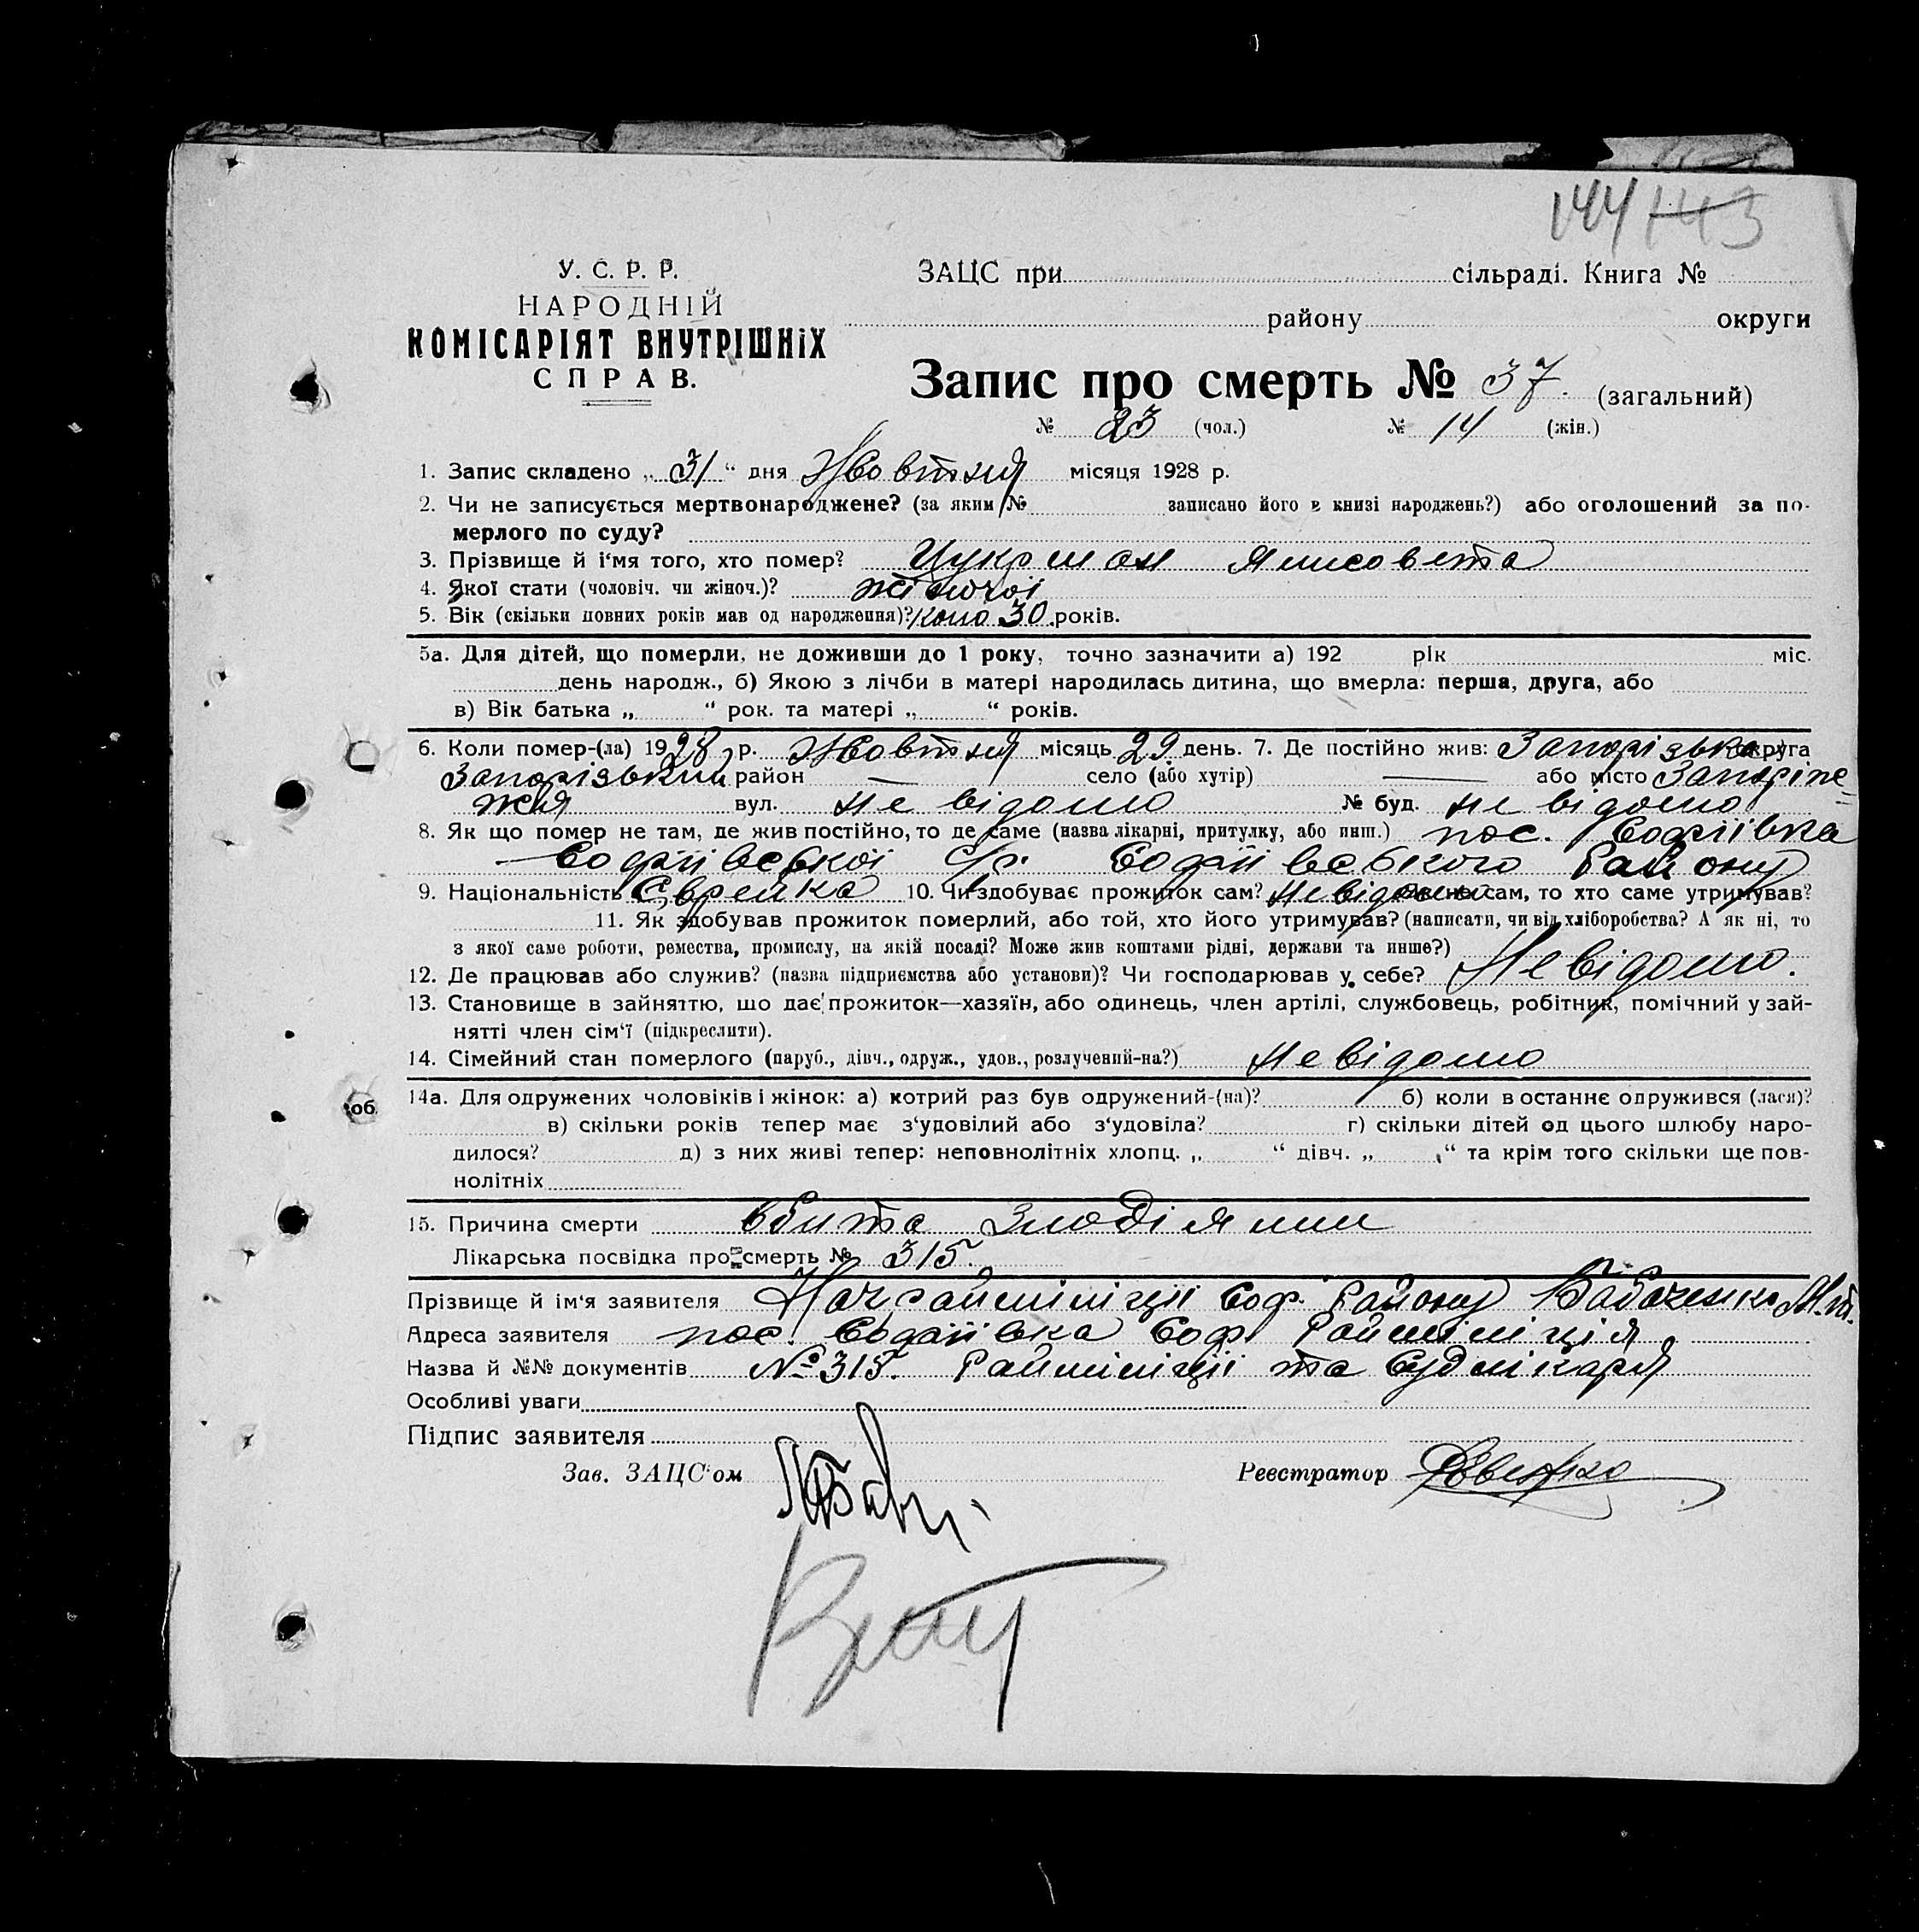 144 143
У. С. Р. Р.
НАРОДНІЙ
КОМІСАРІЯТ ВНУТРІШНІХ
СПРАВ.
ЗАЦС при сільраді. Книга №
району округи
Запис про смерть № 37. (загальний)
№ 23 (чол.) № 14 (жін.)
1. Запис складено „ 31 “ дня Жовтня місяця 1928 р.
2. Чи не записується мертвонароджене? (за яким № записано його в книзі народжень?) або оголошений за по-
мерлого по суду?
3. Прізвище й і'мя того, хто помер? Цукрман Ялисовета
4. Якої стати (чоловіч. чи жіноч.)? жіночої
5. Вік (скільки повних років мав од народження)? коло 30 років.
5а. Для дітей, що померли, не доживши до 1 року, точно зазначити а) 192 рік міс.
день народж., б) Якою з лічби в матері народилась дитина, що вмерла: перша, друга, або
в) Вік батька „ “ рок. та матері „ “ років.
6. Коли помер-(ла) 1928 р. Жовтня місяць 29 день. 7. Де постійно жив: Запорізька округа
Запорізький район — село (або хутір) — або місто Запоріж-
жя вул. не відомо № буд. не відомо
8. Як що помер не там, де жив постійно, то де саме (назва лікарні, притулку, або инш.) пос. Софіївка
Софіївської с/р. Софіївського Району
9. Національність Єврейка 10. Чи здобуває прожиток сам? Невідомо не сам, то хто саме утримував?
11. Як здобував прожиток померлий, або той, хто його утримував? (написати, чи від хліборобства? А як ні, то
з якої саме роботи, ремества, промислу, на якій посаді? Може жив коштами рідні, держави та инше?)
12. Де працював або служив? (назва підприємства або установи)? Чи господарював у себе? Невідомо.
13. Становище в зайняттю, що дає прожиток—хазяїн, або одинець, член артілі, службовець, робітник, помічний у зай-
нятті член сім'ї (підкреслити).
14. Сімейний стан померлого (паруб., дівч., одруж., удов., розлучений-на?) Невідомо
14а. Для одружених чоловіків і жінок: а) котрий раз був одружений-(на)? б) коли в останнє одружився (лася)?
в) скільки років тепер має з'удовілий або з'удовіла? г) скільки дітей од цього шлюбу наро-
дилося? д) з них живі тепер: неповнолітніх хлопц. „ “ дівч. „ “ та крім того скільки ще пов-
нолітніх
15. Причина смерти вбита злодіями
Лікарська посвідка про смерть № 315.
Прізвище й ім'я заявителя Начрайміліції Соф. Району Бабаченко
Адреса заявителя пос. Софіївка Соф. Райміліція
Назва й №№ документів №315. Райміліції та Судлікаря
Особливі уваги
Підпис заявителя
Зав. ЗАЦС'ом Реєстратор